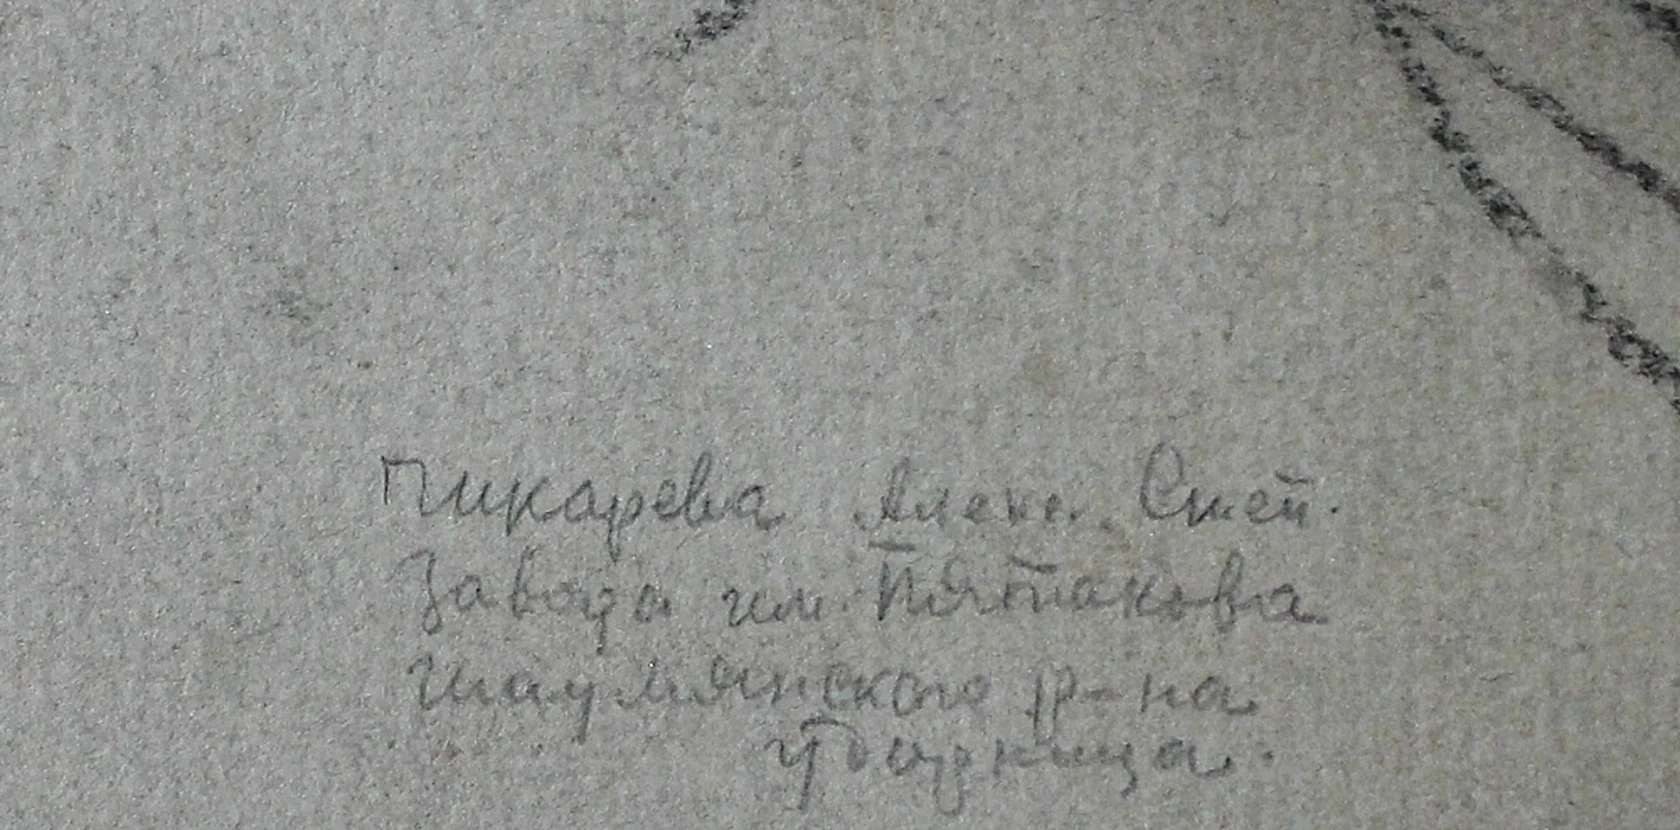 Пикарева Алекс. Степ.
Завода им. Пятакова
Шаумянского р-на